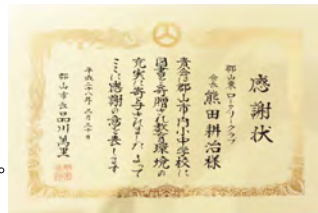 感謝状
郡山東ロータリークラブ
会長 熊田耕治様
貴会は郡山市内小中学校に
図書を寄贈され教育環境の
充実に寄与されました よって
ここに感謝の意を表します
平成二十八年三月二十日
郡山市長 品川萬里